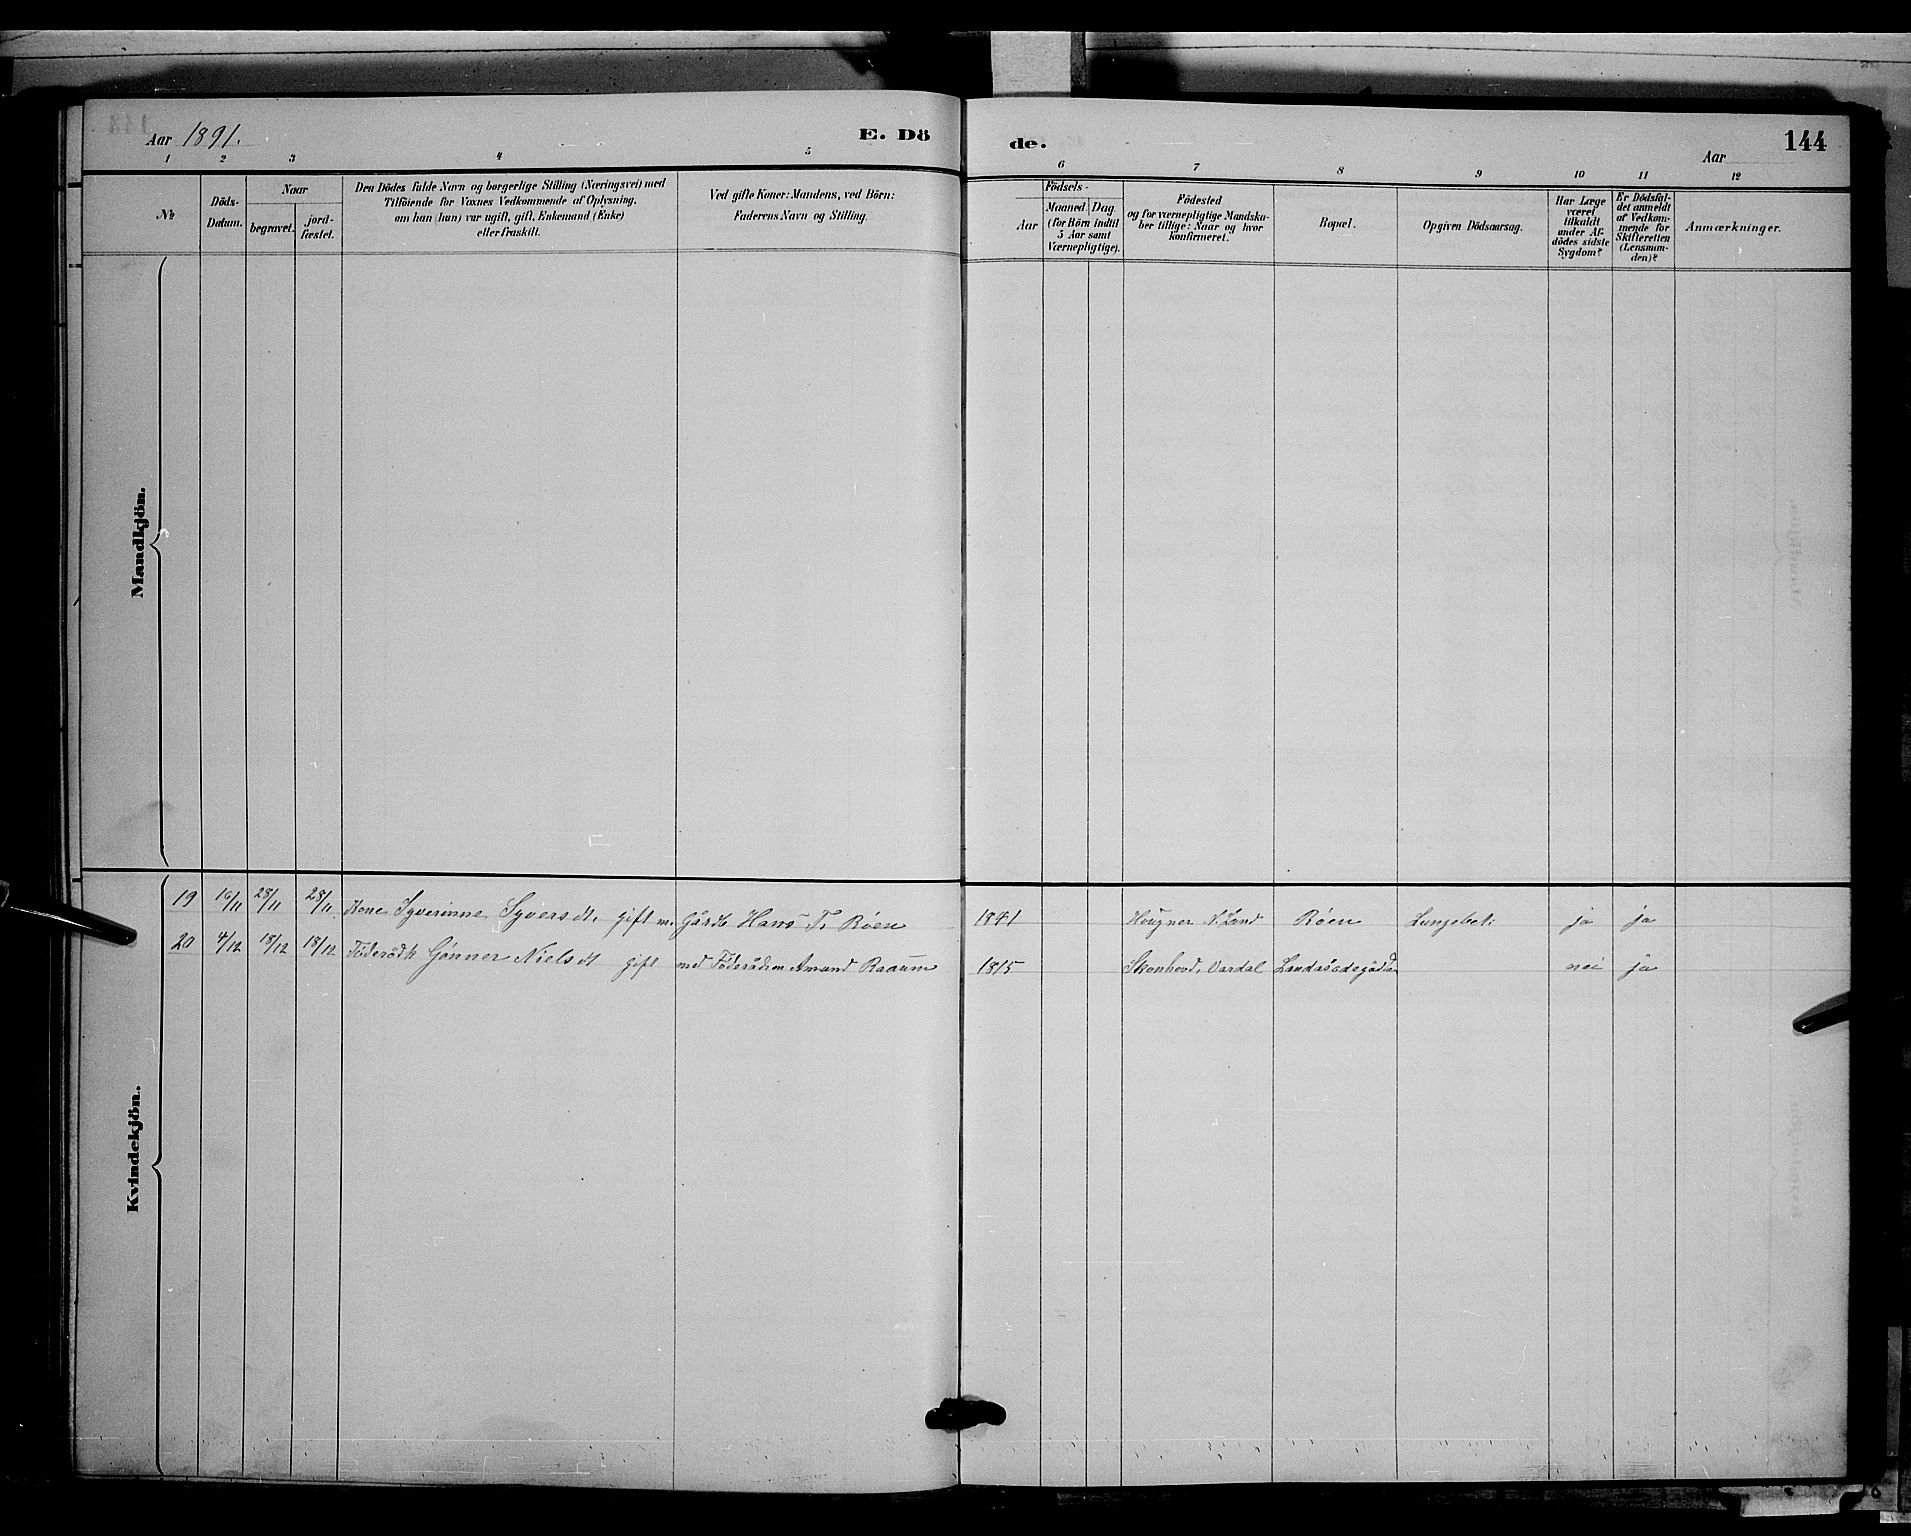 Aar 1891.
E. Dö
de.
144
Aar
1 2 3 4 5 6 7 8 9 10 11 12
№
Döds-
Datum.
Naar
begravet.
jord-
fæstet.
Den Dödes fulde Navn og borgerlige Stilling (Næringsvei) med
Tilföiende for Voxnes Vedkommende af Oplysning,
om han (hun) var ugift, gift, Enkemand (Enke)
eller fraskilt.
Ved gifte Koner: Mandens, ved Börn:
Faderens Navn og Stilling.
Födsels-
Aar
Maaned. Dag
(for Börn indtil
5 Aar samt
Værnepligtige).
Födested
og for værnepligtige Mandska-
ber tillige: Naar og hvor
konfirmeret.
Bopæl.
Opgiven Dödsaarsag.
Har Læge
været
tilkaldt
under Af-
dödes sidste
Sygdom?
Er Dödsfal-
det anmeldt
af Vedkom-
mende for
Skifteretten
(Lensman-
den)?
Anmærkninger.
Mandkjön.
Kvindekjön.
19 16/11 28/11 28/11 Kone Syverinne Syversdt. gift m. Gårdb Hans T. Röen 1841 N. Land Röen Lungebet. ja ja
20 4/12 18/12 18/12 Föderådk Gönner Nielsdt gift med Föderådsm Amund Raaum 1815 Skonhovd, Vardal nei ja